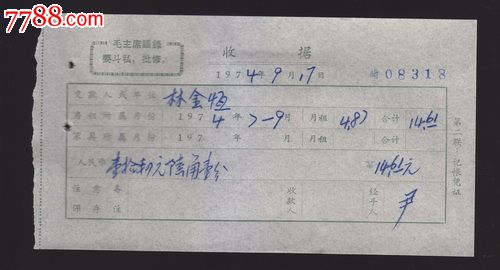 7788.com
毛主席語錄
要斗私,批修。
收据
1974年9月17日
08318
交款人或单位 林金恆
房租所属月份 1974年7—9月 月租 4.87 合计 14.61
家具所属月份 197 年 月 月租 合计
人民币 壹拾肆元陆角壹分 14.61元
注意 保存 备注 收款人 经手人 尹
第二联:记帐凭证